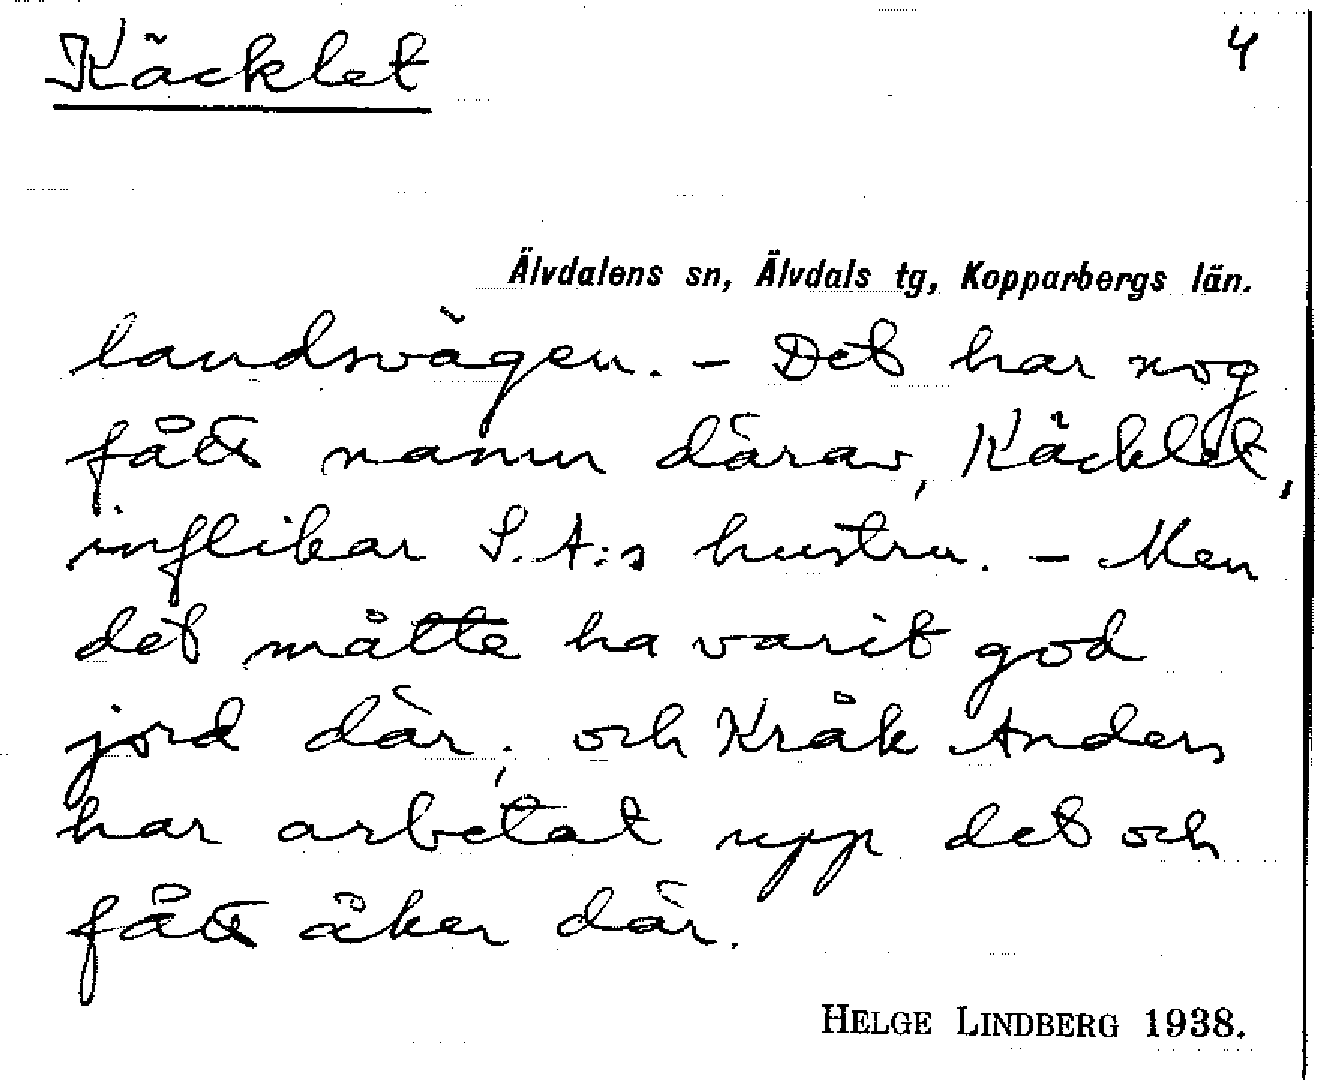 Käcklet
4
Älvdalens sn, Älvdals tg, Kopparbergs län.
landsvägen. – Det har nog
fått namn därav, Käcklet,
inflikar S. A:s hustru. – Men
det måtte ha varit god
jord där; och Kråk Anders
har arbetat upp det och
fått åker där.
HELGE LINDBERG 1938.